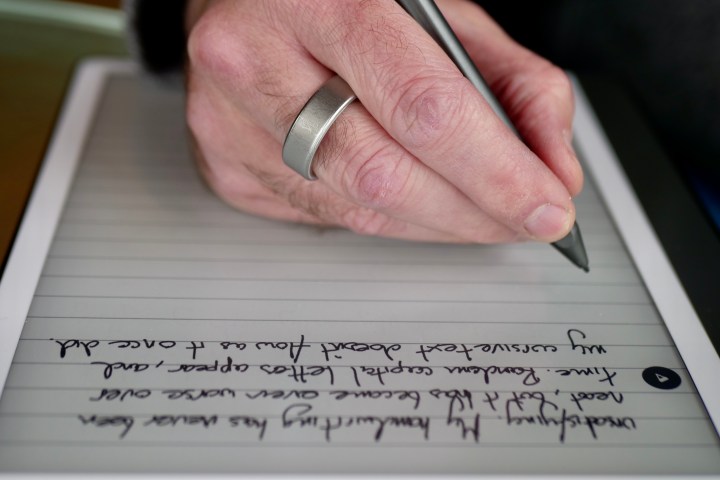 unsatisfying. My handwriting has never been
neat, but it has become even worse over
time. Random capital letters appear, and
my cursive text doesn't flow as it once did.